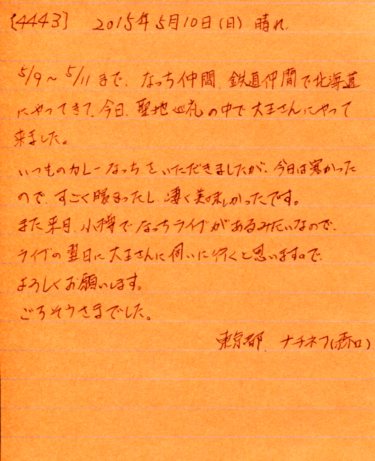 [4443] 2015年5月10日(日) 晴れ
5/9~5/11まで、なっち仲間、鉄道仲間で北海道
にやってきて、今日、聖地巡礼の中で大王さんにやって
来ました。
いつものカレーなっちをいただきましたが、今日は寒かった
ので、すごく暖まったし、凄く美味しかったです。
また来月、小樽でなっちライブがあるみたいなので、
ライブの翌日に大王さんに伺いに行くと思いますので、
よろしくお願いします。
ごちそうさまでした。
東京都 ナチネフ